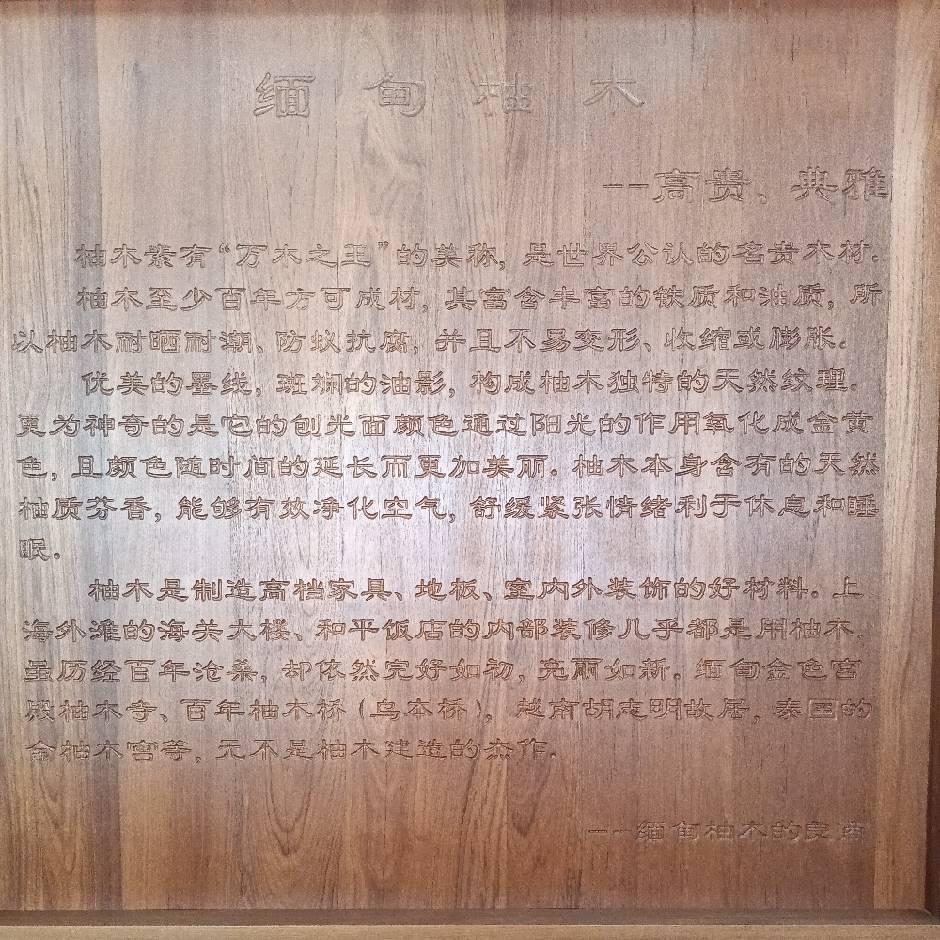 缅甸柚木
--高贵、典雅
柚木素有“万木之王”的美称，是世界公认的名贵木材。
柚木至少百年方可成材，其富含丰富的铁质和油质，所
以柚木耐晒耐潮、防蚁抗腐，并且不易变形、收缩或膨胀。
优美的墨线，斑斓的油影，构成柚木独特的天然纹理。
更为神奇的是它的刨光面颜色通过阳光的作用氧化成金黄
色，且颜色随时间的延长而更加美丽。柚木本身含有的天然
柚质芬香，能够有效净化空气，舒缓紧张情绪利于休息和睡
眠。
柚木是制造高档家具、地板、室内外装饰的好材料。上
海外滩的海关大楼、和平饭店的内部装修几乎都是用柚木，
虽历经百年沧桑，却依然完好如初，亮丽如新。缅甸金色宫
殿柚木寺、百年柚木桥（乌本桥），越南胡志明故居，泰国的
金柚木宫等，无不是柚木建造的杰作。
---缅甸柚木的